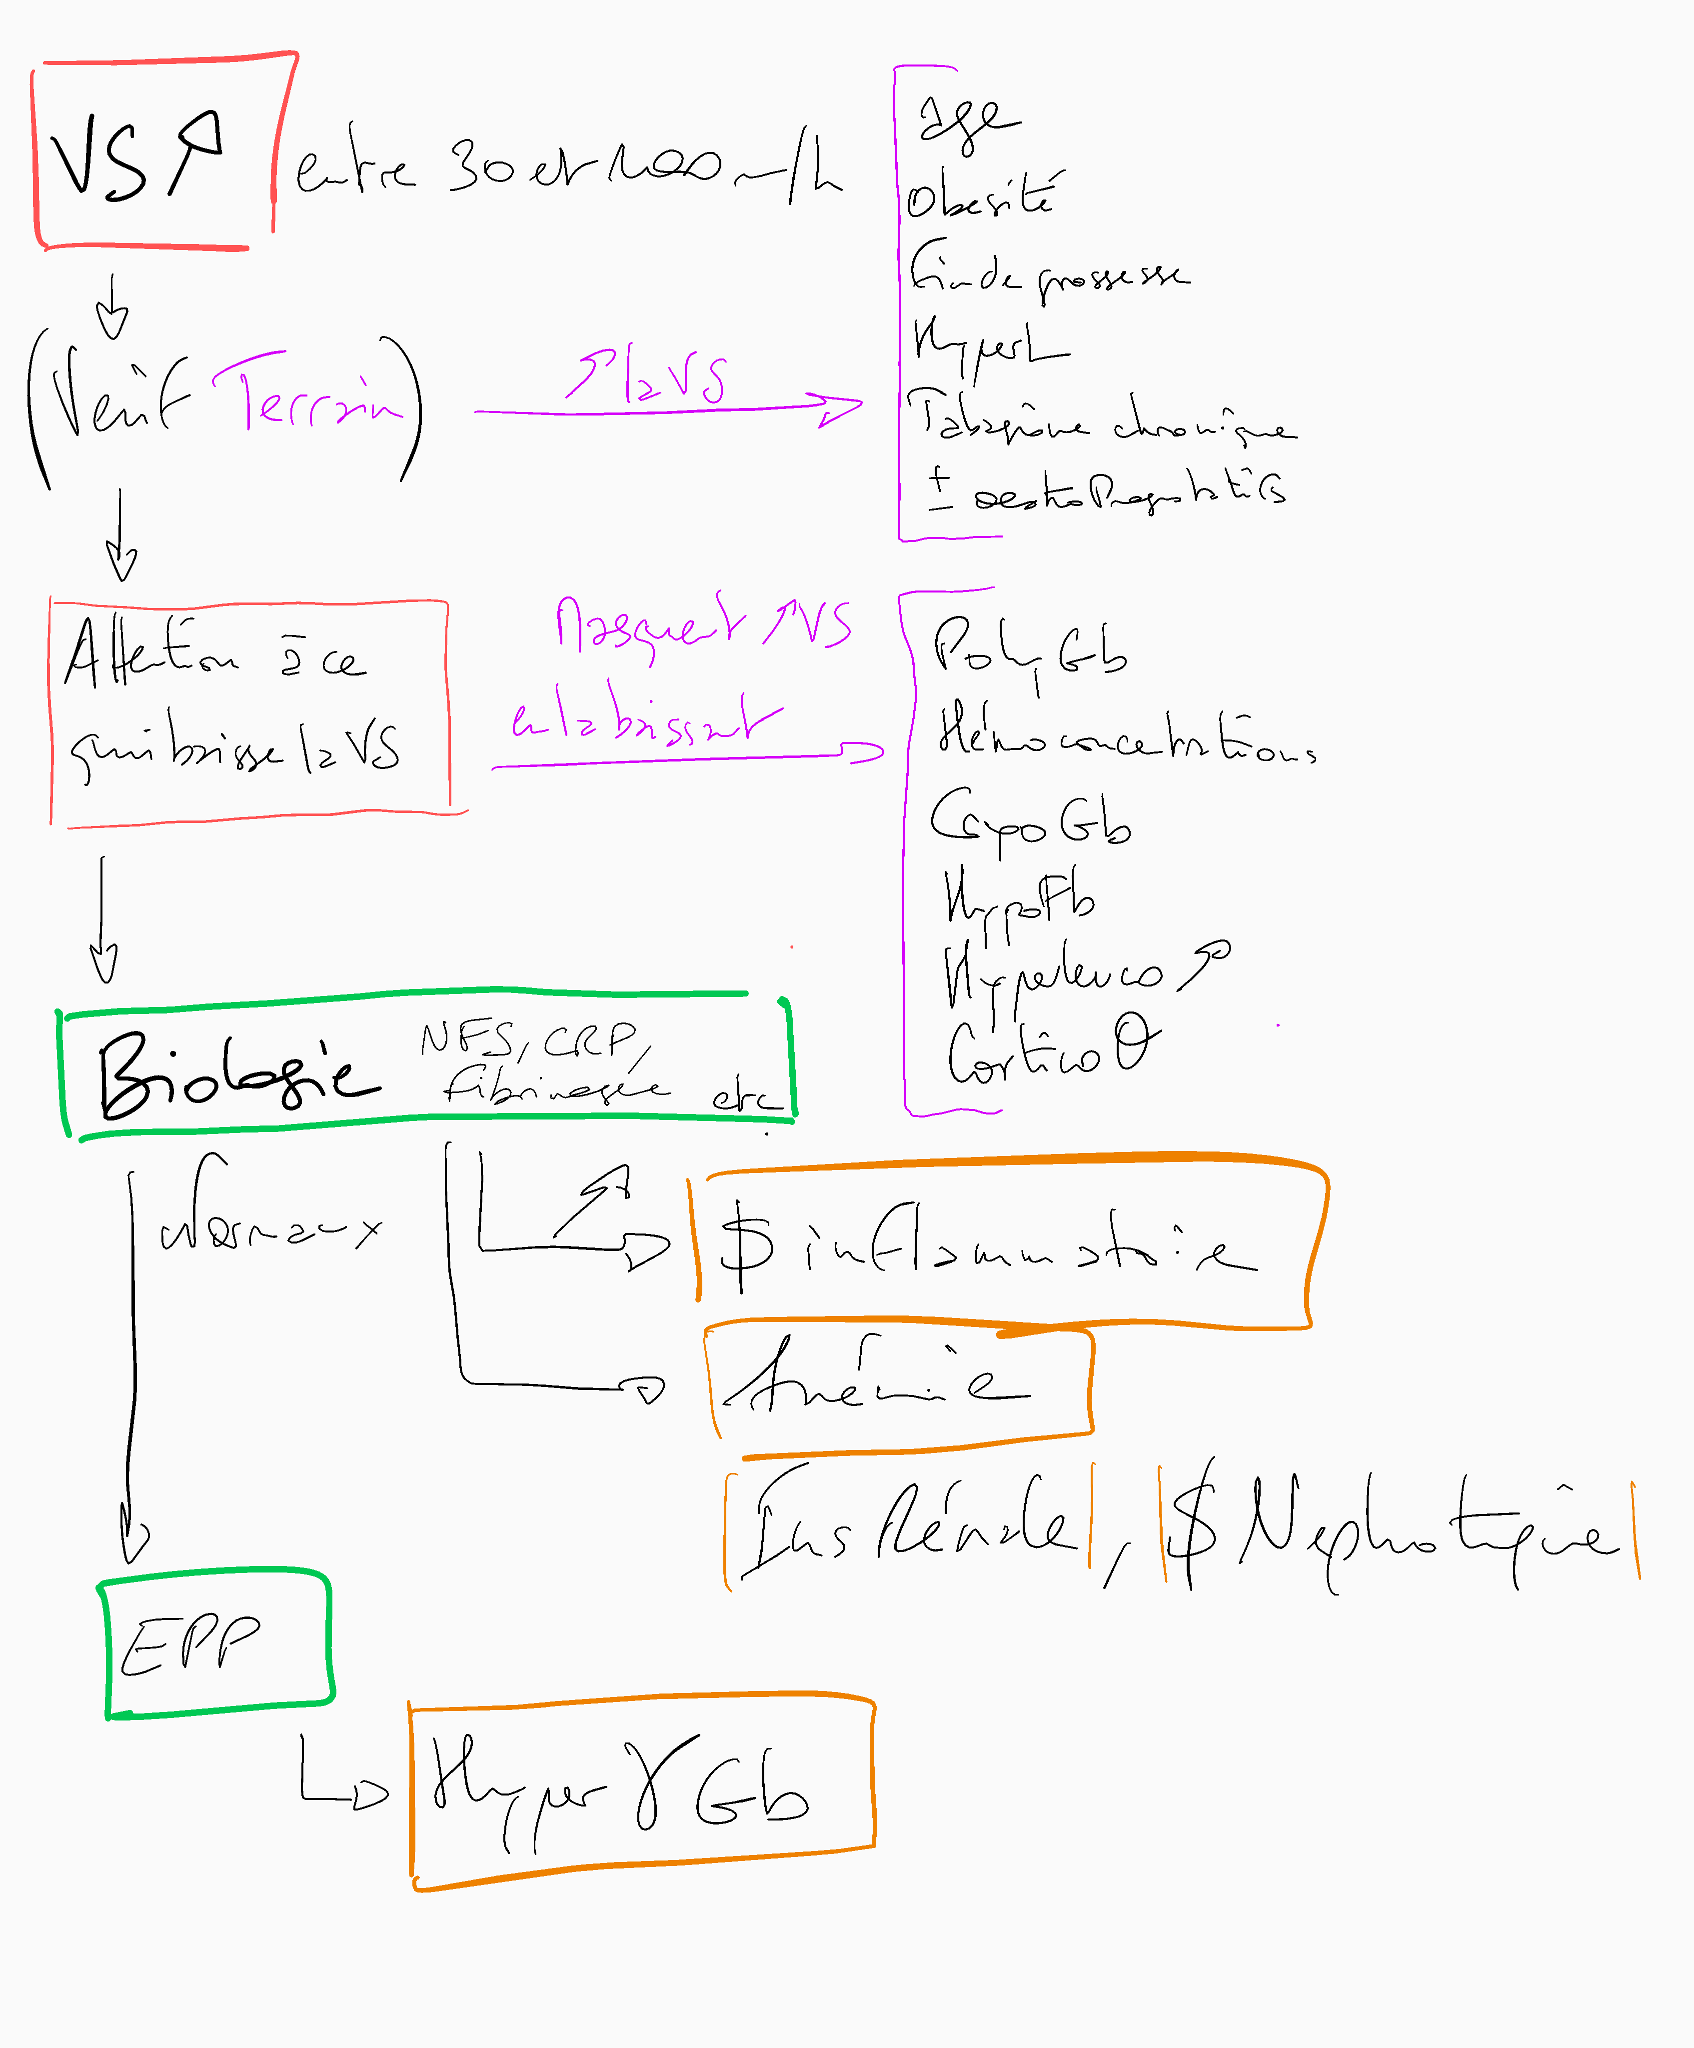 VS ↗ entre 30 et 100 m/h
(Vérif Terrain)
↗ la VS
age
Obésité
Fin de grossesse
HyperL
Tabagisme chronique
± oestroProgestatifs
Attention à ce
qui baisse la VS
Masquent ↗ VS
en la baissant
PolyGb
Hémoconcentrations
CryoGb
HypoFb
Hyperleuco ↗
Cortico θ
Biologie NFS, CRP,
fibrinogène etc
Normaux
↗
$ inflammatoire
Anémie
Ins Rénale, $ Néphotique
EPP
Hyper γ Gb